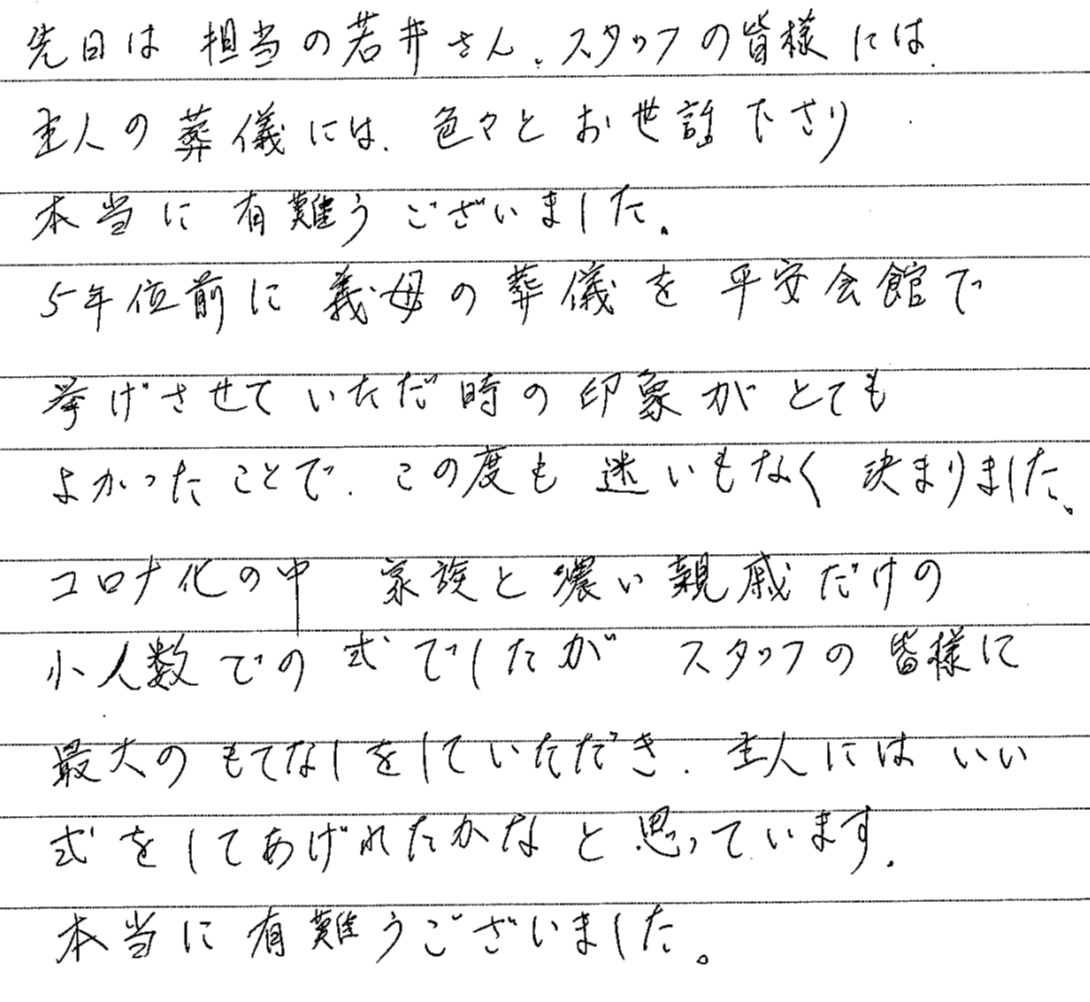 先日は 担当の若井さん、スタッフの皆様には、
主人の葬儀には、色々とお世話下さり
本当に有難うございました。
5年位前に義母の葬儀を平安会館で
挙げさせていただ時の印象がとても
よかったことで、この度も迷いもなく決まりました。
コロナ化の中 家族と濃い親戚だけの
小人数での式でしたが スタッフの皆様に
最大のもてなしをしていただき、主人にはいい
式をしてあげれたかなと思っています。
本当に有難うございました。